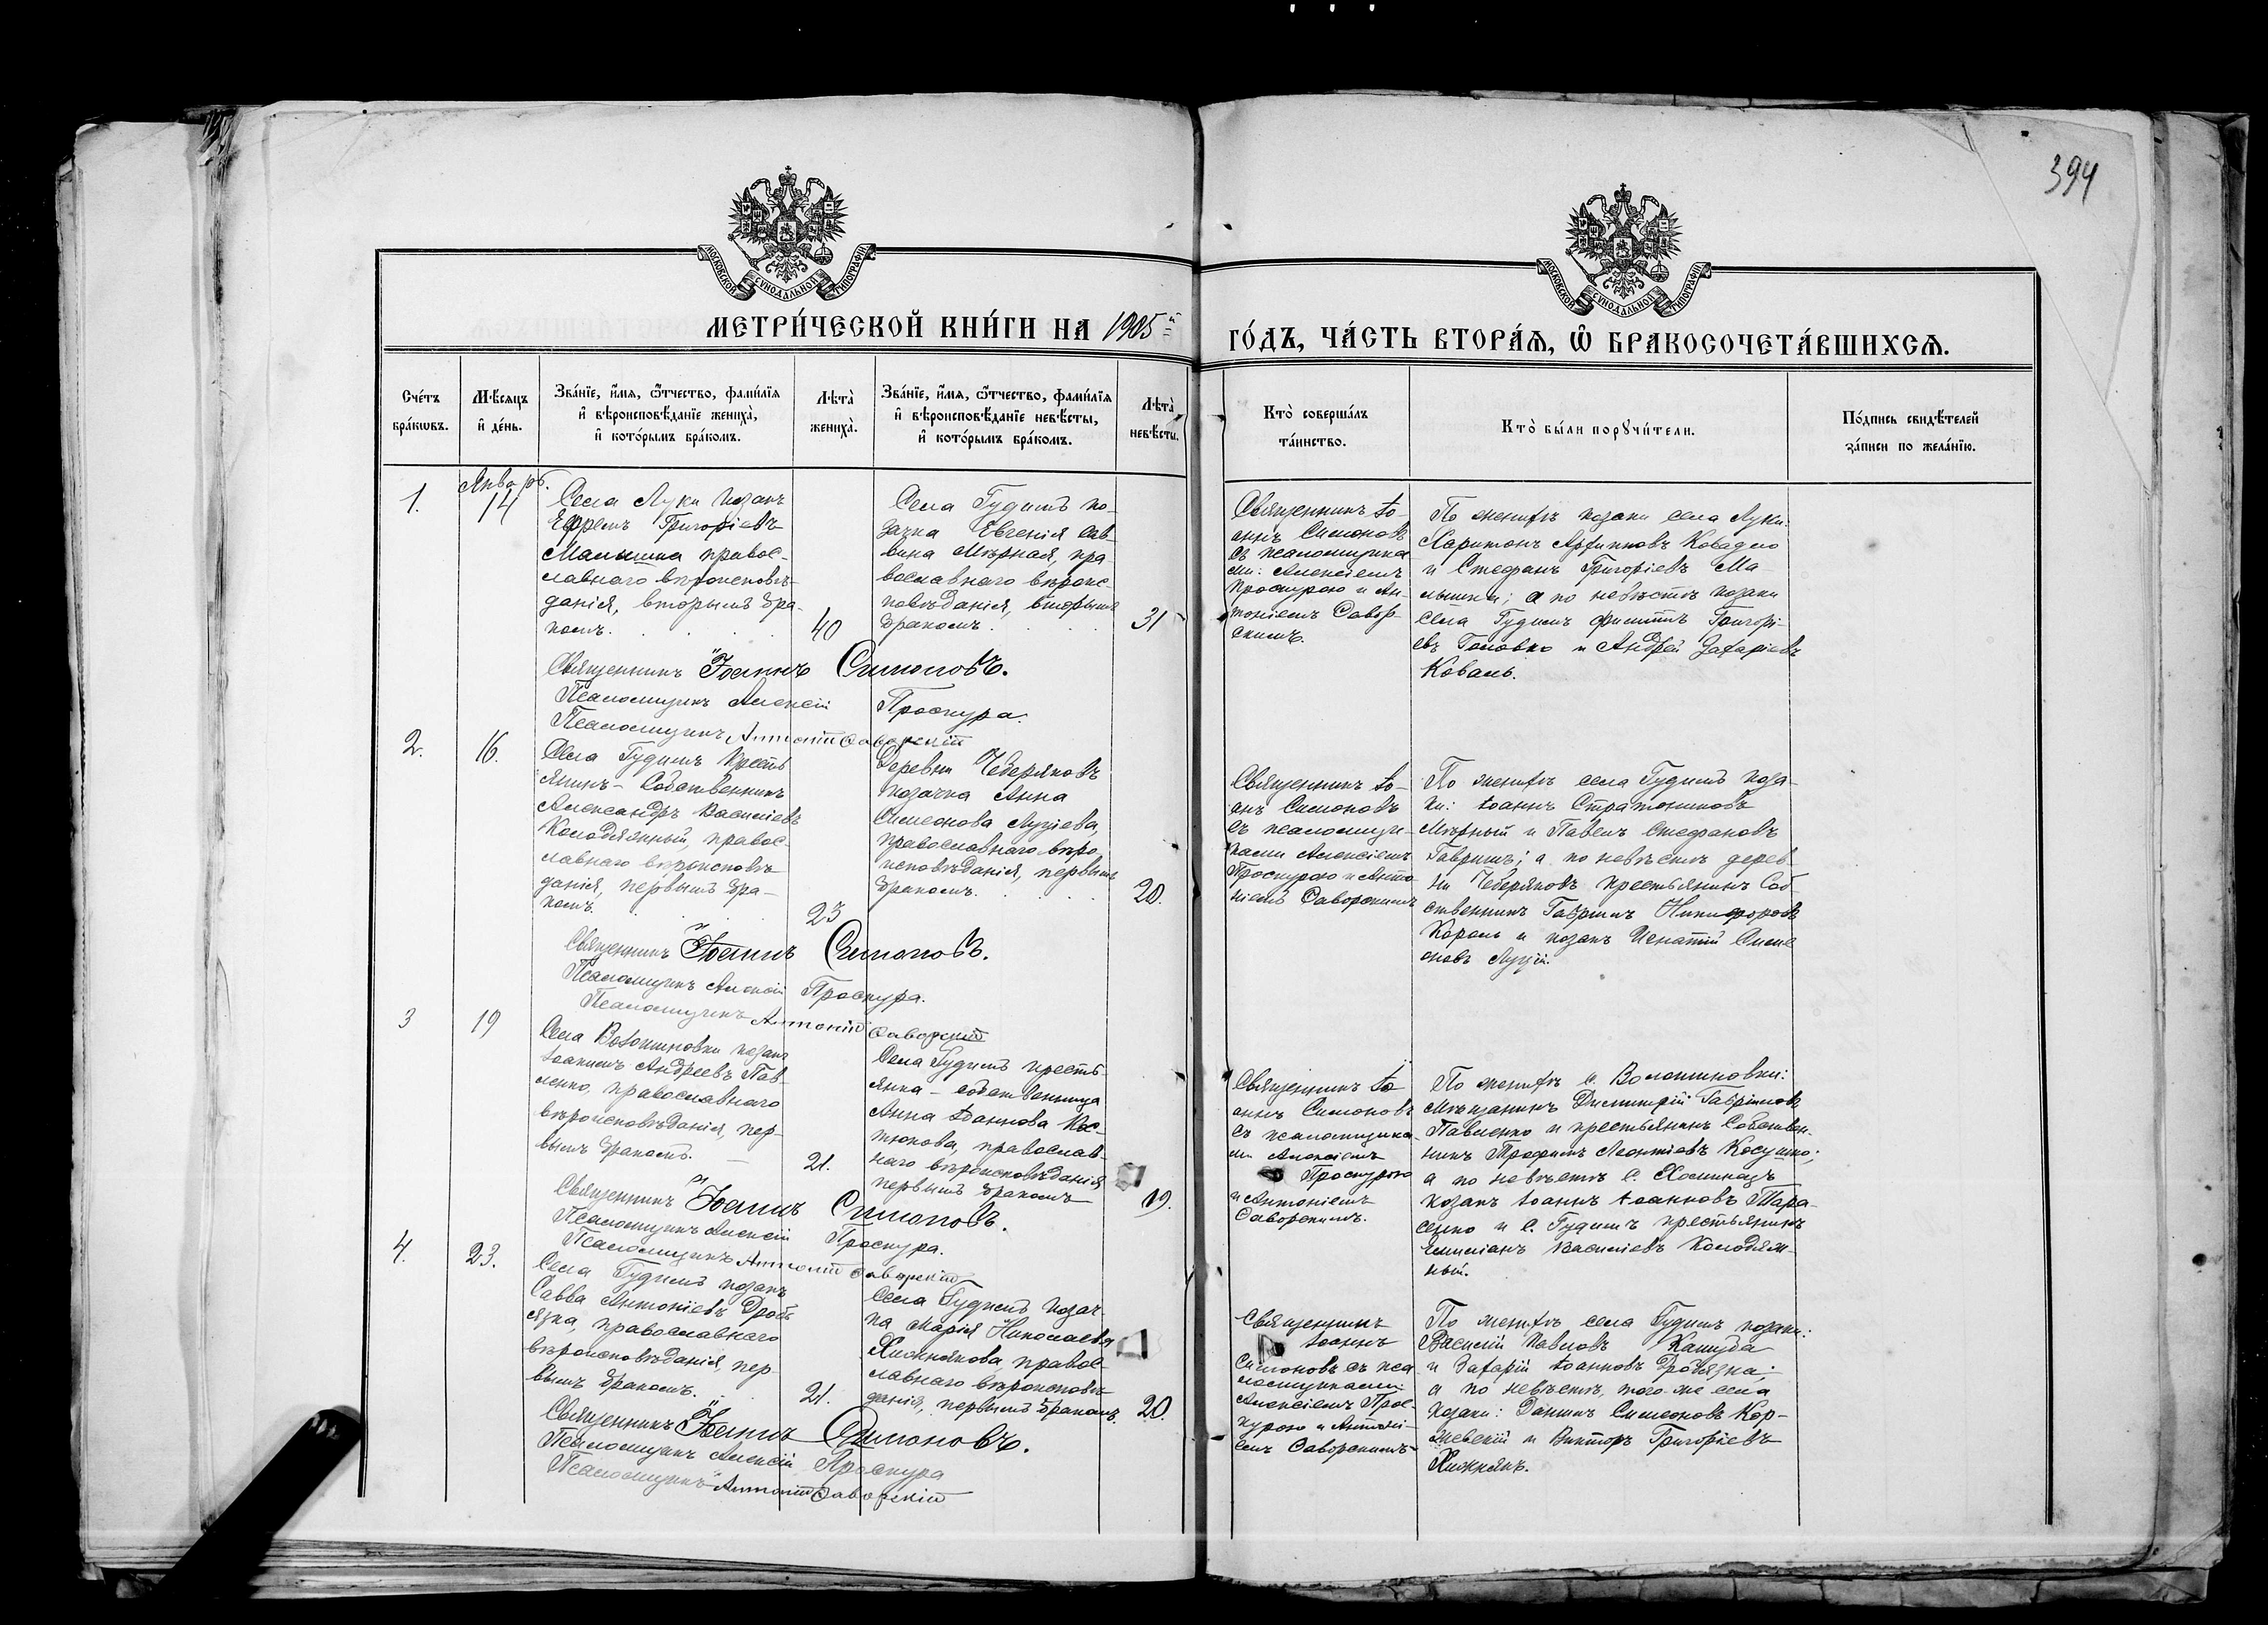 394
МОСКОВСКОЙ СУНОДАЛЬНОЙ ТИПОГРАФІИ
МОСКОВСКОЙ СУНОДАЛЬНОЙ ТИПОГРАФІИ
МЕТРИ́ЧЕСКОЙ КНИ́ГИ НА 1905й
ГО́ДЪ, ЧА́СТЬ ВТОРА́Ѧ, Ѽ БРАКОСОЧЕТА́ВШИХСѦ.
Сче́тъ бра́кѡвъ.
Мѣ́сѧцъ и҆ де́нь.
Зва́нїе, и҆́мѧ, ѻ҆́тчество, фами́лїѧ
и҆ вѣроисповѣ́данїе жениха̀,
и҆ кото́рымъ бра́комъ.
Лѣта̀ жениха̀.
Зва́нїе, и҆́мѧ, ѻ҆́тчество, фами́лїѧ
и҆ вѣроисповѣ́данїе невѣ́сты,
и҆ кото́рымъ бра́комъ.
Лѣта̀ невѣ́сты.
Кто̀ соверша́лъ
та́инство.
Кто̀ бы́ли порꙋчи́тели.
По́дпись свидѣ́телей
за́писи по жела́нїю.
1.
Январь.
14
Села Луки козакъ
Ефремъ Григоріевъ
Малышка правос-
лавнаго вѣроисповѣ-
данія, вторымъ бра-
комъ.
40
Села Гудимъ ко-
зачка Евгенія Сав-
вина Мѣрная, пра-
вославнаго вѣроис-
повѣданія, вторымъ
бракомъ.
31
Священникъ Іо-
аннъ Симоновъ
съ псаломщика-
ми: Алексіемъ
Проскурою и Ан-
тоніемъ Савор-
скимъ.
По женихѣ козаки села Луки:
Харитонъ Архиповъ
и Стефанъ Григоріевъ Ма-
лышка; а по невѣстѣ козаки
села Гудимъ Филиппъ Григорі-
евъ Головко и Андрей Захаріевъ
Коваль.
Священникъ Іоаннъ Симоновъ.
Псаломщикъ Алексій Проскура.
Псаломщикъ Антоній Саворскій
2.
16.
Села Гудимъ кресть
янинъ-Собственникъ
Александръ Василіевъ
Колодяжный, правос-
лавнаго вѣроисповѣ-
данія, первымъ бра-
комъ.
23
Деревни Чеберяковъ
козачка Анна
Симеонова Луціева,
православнаго вѣро-
исповѣданія, первымъ
бракомъ.
20.
Священникъ Іо-
анъ Симоновъ
съ псаломщи-
ками Алексіемъ
Проскурою и Анто-
ніемъ Саворскимъ
По женихѣ села Гудимъ коза-
ки: Іоаннъ Стратониковъ
Мѣрный и Павелъ Стефановъ
Гавришъ; а по невѣстѣ дерев-
ни Чеберяковъ крестьянинъ Соб-
ственникъ Гавріилъ Никифоровъ
Король и козакъ Игнатій Симе
оновъ Луцій.
Священникъ Іоаннъ Симоновъ.
Псаломщикъ Алексій Проскура.
Псаломщикъ Антоній Саворскій
3
19
Села Волошиновки козакъ
Іоакимъ Андреевъ Пав-
ленко, православнаго
вѣроисповѣданія, пер-
вымъ бракомъ.
21.
Села Гудимъ кресть-
янка-собственница
Анна Іоаннова Кос-
тюкова, православ-
наго вѣроисповѣданія
первымъ бракомъ
19.
Священникъ Іо-
аннъ Симоновъ
съ псаломщика-
ми Алексіемъ
Проскурою
и Антоніемъ
Саворскимъ.
По женихѣ с. Волошиновки:
мѣщанинъ Димитрій Гавріиловъ
Павленко и крестьянинъ Собствен-
никъ Трофимъ Леонтіевъ
а по невѣстѣ с.
козакъ Іоаннъ Іоанновъ Тара-
сенко и с. Гудимъ крестьянинъ
Емиліанъ Василіевъ Колодяж-
ный.
Священникъ Іоаннъ Симоновъ.
Псаломщикъ Алексій Проскура.
Псаломщикъ Антоній Саворскій
4.
23.
Села Гудимъ козакъ
Савва Антоніевъ Дроб
язка, православнаго
вѣроисповѣданія, пер-
вымъ бракомъ.
21.
Села Гудимъ козач-
ка Марія Николаева
Хижнякова, правос-
лавнаго вѣроисповѣ-
данія, первымъ бракомъ.
20.
Священникъ
Іоаннъ
Симоновъ съ пса
ломщиками:
Алексіемъ Прос-
курою и Антоні-
емъ Саворскимъ
По женихѣ села Гудимъ козаки:
Василій Павловъ
и Захарій Іоанновъ Дробязка;
а по невѣстѣ, того же села
козаки: Даніилъ Симеоновъ Кор-
жевскій и Викторъ Григоріевъ
Хижнякъ.
Священникъ Іоаннъ Симоновъ.
Псаломщикъ Алексій Проскура
Псаломщикъ Антоній Саворскій